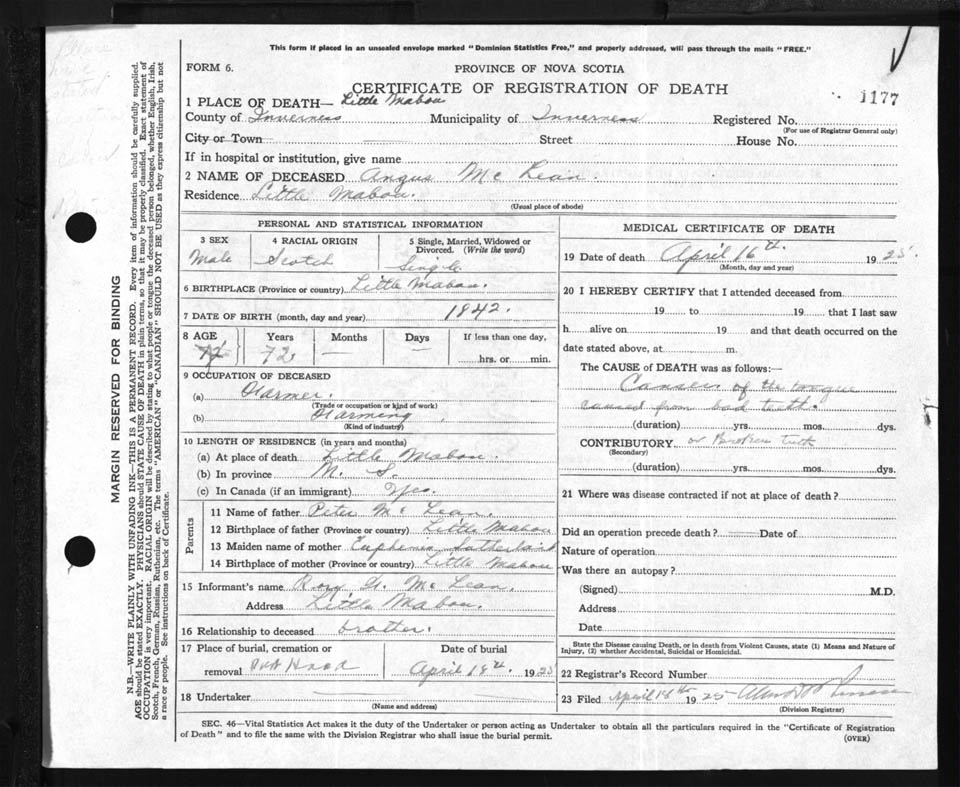 This form if placed in an unsealed envelope marked "Dominion Statistics Free," and properly addressed, will pass through the mails "FREE."
FORM 6.
PROVINCE OF NOVA SCOTIA
CERTIFICATE OF REGISTRATION OF DEATH
1177
1 PLACE OF DEATH— Little Mabou
County of Inverness Municipality of Inverness Registered No.
(For use of Registrar General only)
City or Town Street House No.
If in hospital or institution, give name
2 NAME OF DECEASED Angus Mc Lean
Residence Little Mabou.
(Usual place of abode)
PERSONAL AND STATISTICAL INFORMATION
3 SEX 4 RACIAL ORIGIN 5 Single, Married, Widowed or Divorced. (Write the word)
Male Scotch Single
6 BIRTHPLACE (Province or country) Little Mabou.
7 DATE OF BIRTH (month, day and year) 1842.
8 AGE Years Months Days If less than one day,
72 — — hrs. or min.
9 OCCUPATION OF DECEASED
(a) Farmer.
(Trade or occupation or kind of work)
(b) Farming
(Kind of industry)
10 LENGTH OF RESIDENCE (in years and months)
(a) At place of death Little Mabou.
(b) In province N. S.
(c) In Canada (if an immigrant)
Parents
11 Name of father Peter Mc Lean.
12 Birthplace of father (Province or country) Little Mabou
13 Maiden name of mother Euphemia Sutherland
14 Birthplace of mother (Province or country) Little Mabou
15 Informant's name Rory Mc Lean
Address Little Mabou.
16 Relationship to deceased brother.
17 Place of burial, cremation or Date of burial
removal Port Hood April 18th. 1925
18 Undertaker
(Name and address)
MEDICAL CERTIFICATE OF DEATH
19 Date of death April 16th. 1925.
(Month, day and year)
20 I HEREBY CERTIFY that I attended deceased from
19 to 19 that I last saw
h alive on 19 and that death occurred on the
date stated above, at m.
The CAUSE of DEATH was as follows:—
Cancer of the tongue
caused from bad teeth.
(duration) yrs. mos. dys.
CONTRIBUTORY or Broken teeth
(Secondary)
(duration) yrs. mos. dys.
21 Where was disease contracted if not at place of death?
Did an operation precede death? Date of
Nature of operation
Was there an autopsy?
(Signed) M.D.
Address
Date
State the Disease causing Death, or in death from Violent Causes, state (1) Means and Nature of Injury, (2) whether Accidental, Suicidal or Homicidal.
22 Registrar's Record Number
23 Filed April 18th 1925
(Division Registrar)
SEC. 46—Vital Statistics Act makes it the duty of the Undertaker or person acting as Undertaker to obtain all the particulars required in the "Certificate of Registration
of Death" and to file the same with the Division Registrar who shall issue the burial permit.
(OVER)
MARGIN RESERVED FOR BINDING
N.B.—WRITE PLAINLY WITH UNFADING INK—THIS IS A PERMANENT RECORD. Every item of information should be carefully supplied.
AGE should be stated EXACTLY. PHYSICIANS should STATE CAUSE OF DEATH in plain terms, so that it may be properly classified. Exact statement of
OCCUPATION is very important. RACIAL ORIGIN will be described by stating to what people or tongue the deceased person belonged, whether English, Irish,
Scotch, French, German, Russian, Ruthenian, etc. The terms "AMERICAN" or "CANADIAN" SHOULD NOT BE USED as they express citizenship but not
a race or people. See instructions on back of Certificate.